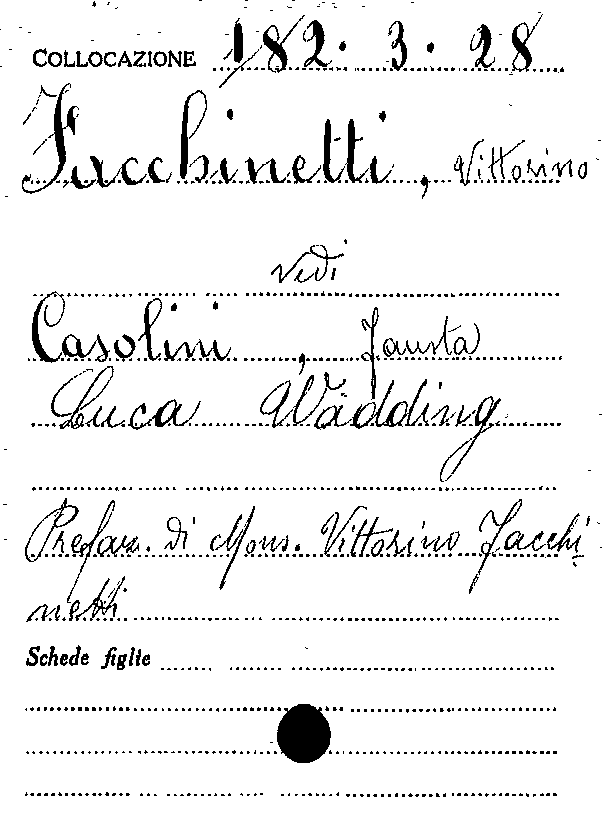 COLLOCAZIONE 182. 3. 28
Facchinetti, Vittorino
vedi
Casolini, Fausta
Luca Wadding
Prefaz. di Mons. Vittorino Facchi
netti
Schede figlie